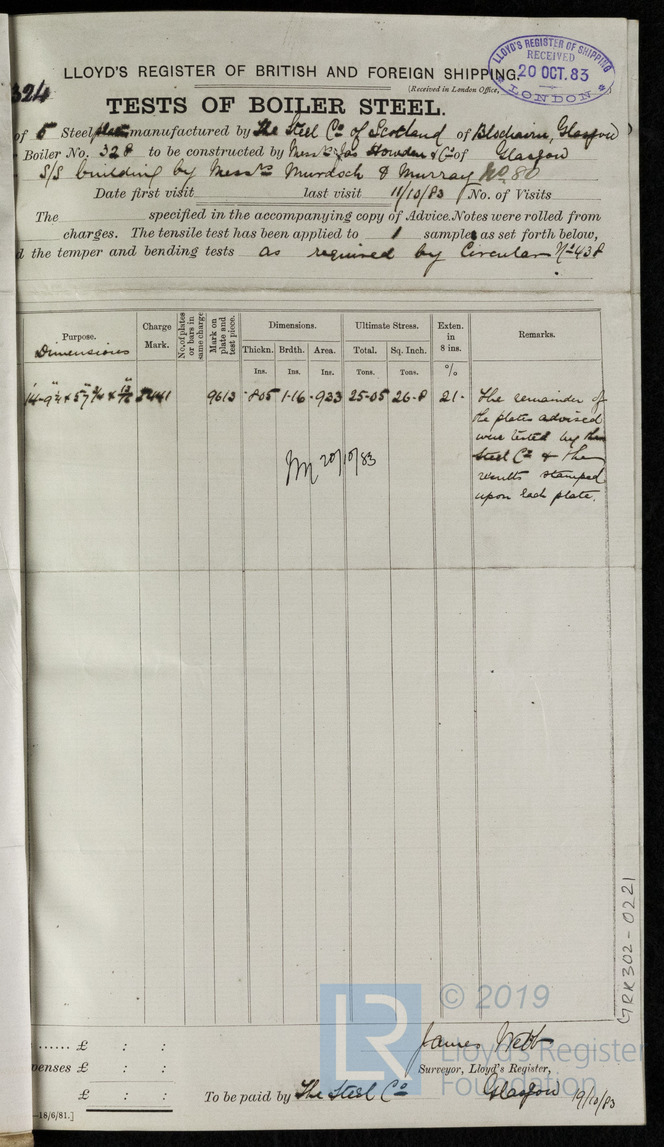 LLOYD'S REGISTER OF SHIPPING
RECEIVED
20 OCT. 83
LONDON
324
LLOYD'S REGISTER OF BRITISH AND FOREIGN SHIPPING.
(Received in London Office,
TESTS OF BOILER STEEL.
of 5 Steel plates manufactured by The Steel Co of Scotland of Blochairn, Glasgow
Boiler No. 328 to be constructed by Messrs Jas Howden & Co of Glasgow
S/S building by Messrs Murdoch & Murray No. 80
Date first visit last visit 11/10/83 No. of Visits
The specified in the accompanying copy of Advice Notes were rolled from
charges. The tensile test has been applied to 1 samples as set forth below,
d the temper and bending tests as required by Circular No 438
Purpose. Charge Mark. No. of plates or bars in same charge Mark on plate and test piece. Dimensions. Ultimate Stress. Exten. in 8 ins. Remarks.
Dimensions
Thickn. Brdth. Area. Total. Sq. Inch.
Ins. Ins. Ins. Tons. Tons. %
5441 9613 .805 1.16 .933 25.05 26.8 21. The remainder of
the plates advised
were tested by the
Steel Co & the
results stamped
upon each plate.
20/10/83
GRK302-0221
© 2019
LR
Lloyd's Register
Foundation
...... £ : :
penses £ : :
£ : :
James Webb
Surveyor, Lloyd's Register,
To be paid by The Steel Co Glasgow 19/10/83
—18/6/81.]